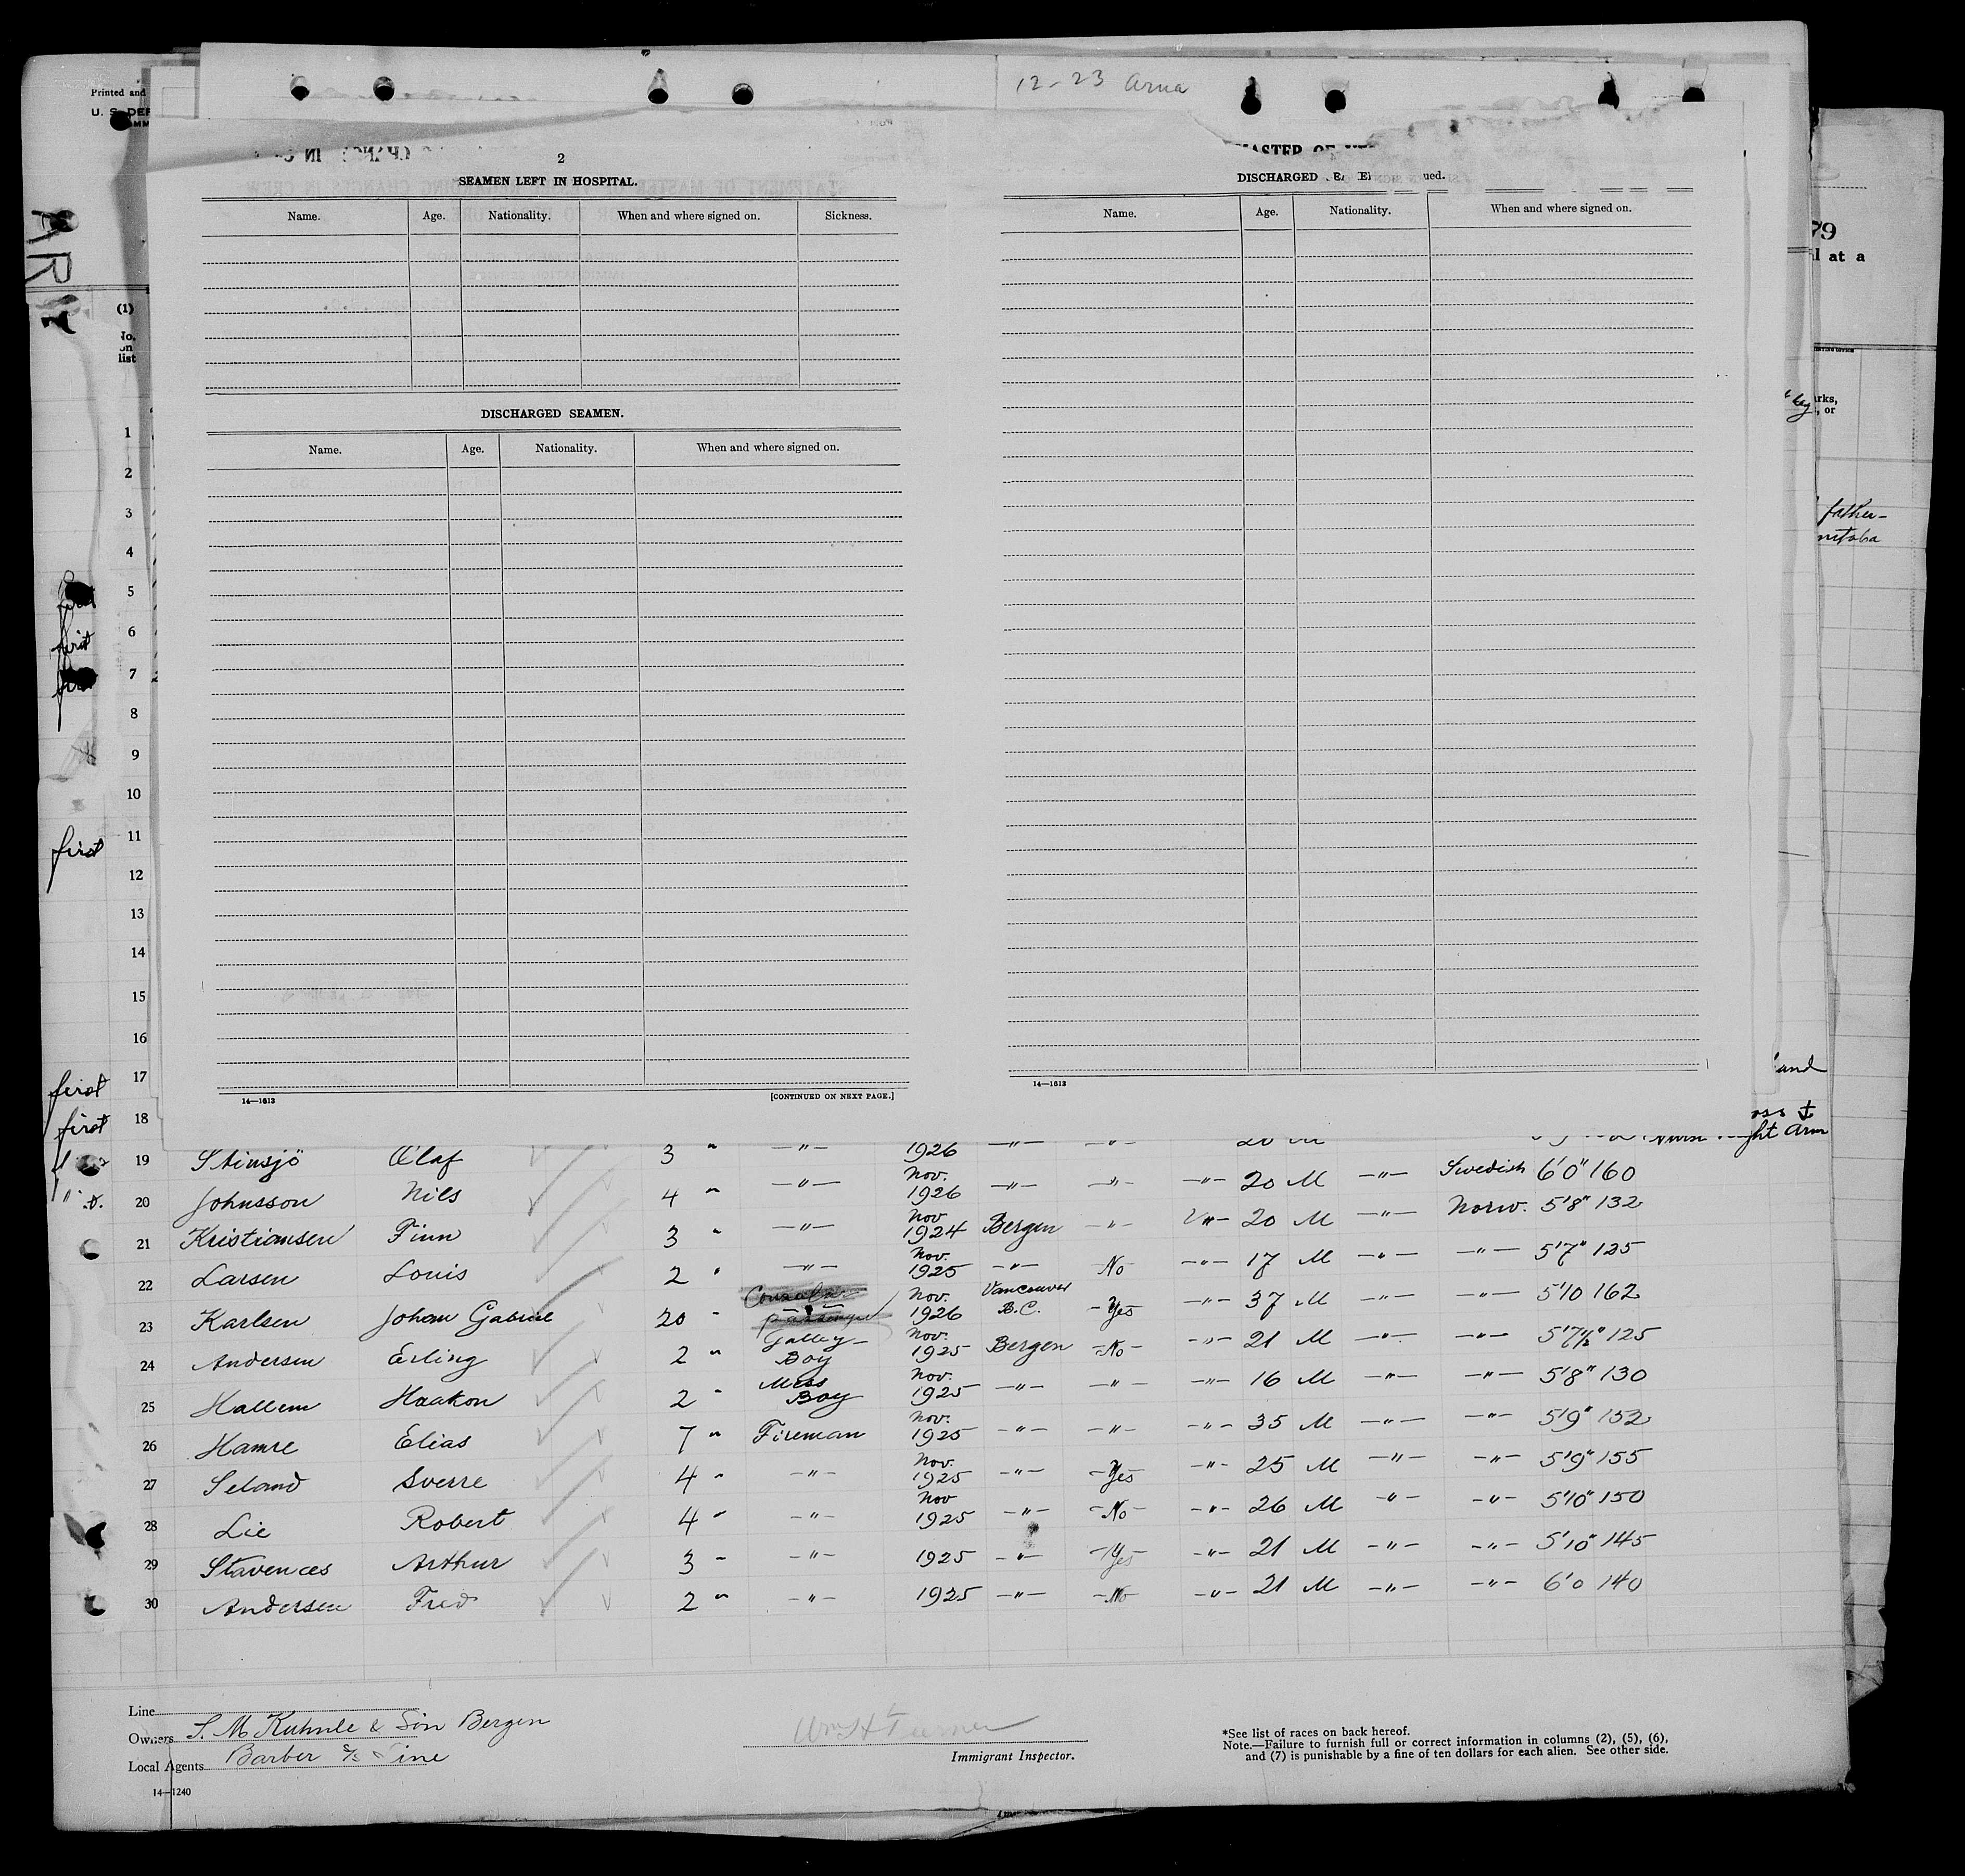 12-23 Arna
Printed and
U. S. DEP
79
l at a
2
SEAMEN LEFT IN HOSPITAL.
Name. Age. Nationality. When and where signed on. Sickness.
DISCHARGED SEAMEN.
Name. Age. Nationality. When and where signed on.
14—1613 [CONTINUED ON NEXT PAGE.]
MASTER OF
DISCHARGED ued.
Name. Age. Nationality. When and where signed on.
14—1613
arks,
, or
father-
nitoba
and
ght arm
(1)
No.
on
list
1
2
3
4
5 first
6 first
7 first
8
9
10
11 first
12
13
14
15
16
17 first
18 first
19 Stinsjö Olaf 3 " —"— 1926 —"— —"— 20 M
20 Johnsson Nils 4 " —"— Nov. 1926 —"— —"— —"— 20 M —"— Swedish 6'0" 160
21 Kristiansen Finn 3 " —"— Nov 1924 Bergen —"— —"— 20 M —"— Norw. 5'8" 132
22 Larsen Louis 2 " —"— Nov. 1925 —"— No —"— 17 M —"— —"— 5'7" 125
23 Karlsen Johan Gabriel 20 " —"— passenger Nov. 1926 Vancouver B.C. Yes —"— 37 M —"— —"— 5'10 162
24 Andersen Erling 2 " Galley Boy Nov. 1925 Bergen No —"— 21 M —"— —"— 5'7½" 125
25 Hallem Haakon 2 " Mess Boy Nov. 1925 —"— —"— —"— 16 M —"— —"— 5'8" 130
26 Hamre Elias 7 " Fireman Nov. 1925 —"— —"— —"— 35 M —"— —"— 5'9" 152
27 Seland Sverre 4 " —"— Nov. 1925 —"— Yes —"— 25 M —"— —"— 5'9" 155
28 Lie Robert 4 " —"— Nov 1925 —"— No —"— 26 M —"— —"— 5'10" 150
29 Stavences Arthur 3 " —"— 1925 —"— Yes —"— 21 M —"— —"— 5'10" 145
30 Andersen Fred 2 " —"— 1925 —"— No —"— 21 M —"— —"— 6'0 140
Line
Owners S. M. Kuhnle & Son Bergen
Local Agents Barber S/S Line
14—1240
Wm H Turner
Immigrant Inspector.
*See list of races on back hereof.
Note.—Failure to furnish full or correct information in columns (2), (5), (6),
and (7) is punishable by a fine of ten dollars for each alien. See other side.